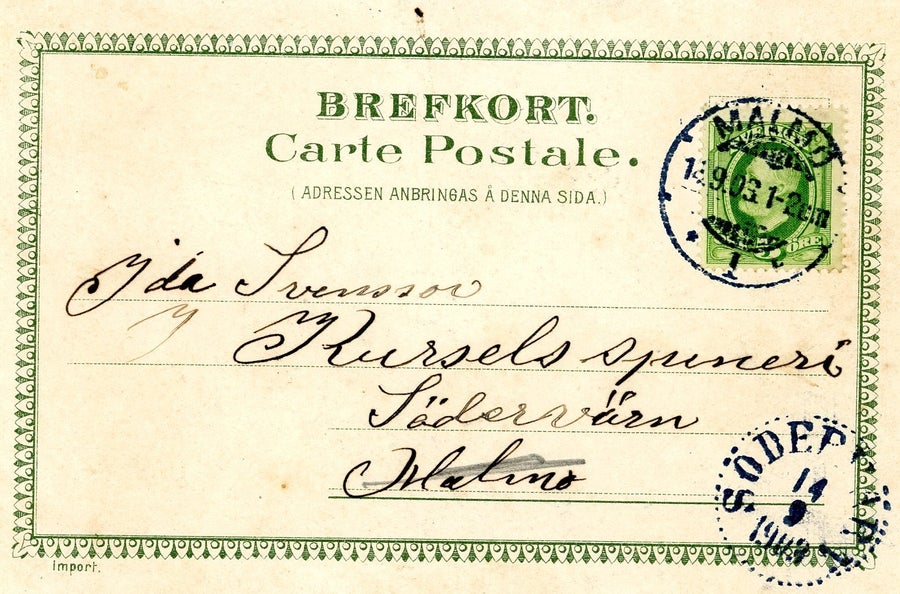 BREFKORT.
Carte Postale.
(ADRESSEN ANBRINGAS Å DENNA SIDA.)
MALMÖ
14.9.03.1-2em
1
5 ÖRE
Ida Svensson
Kursels spineri
Södervärn
Malmö
SÖDERVÄRN
14
9
Import.